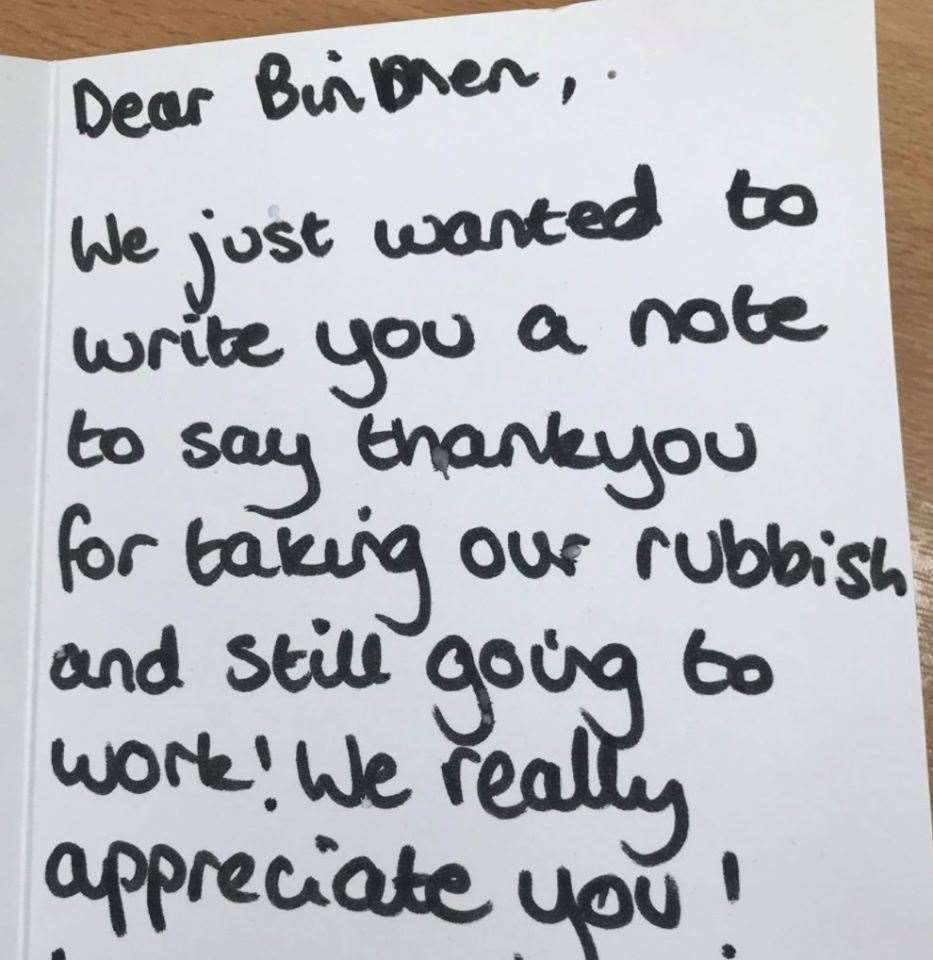 Dear Binmen,
We just wanted to
write you a note
to say thankyou
for taking our rubbish
and still going to
work! We really
appreciate you!